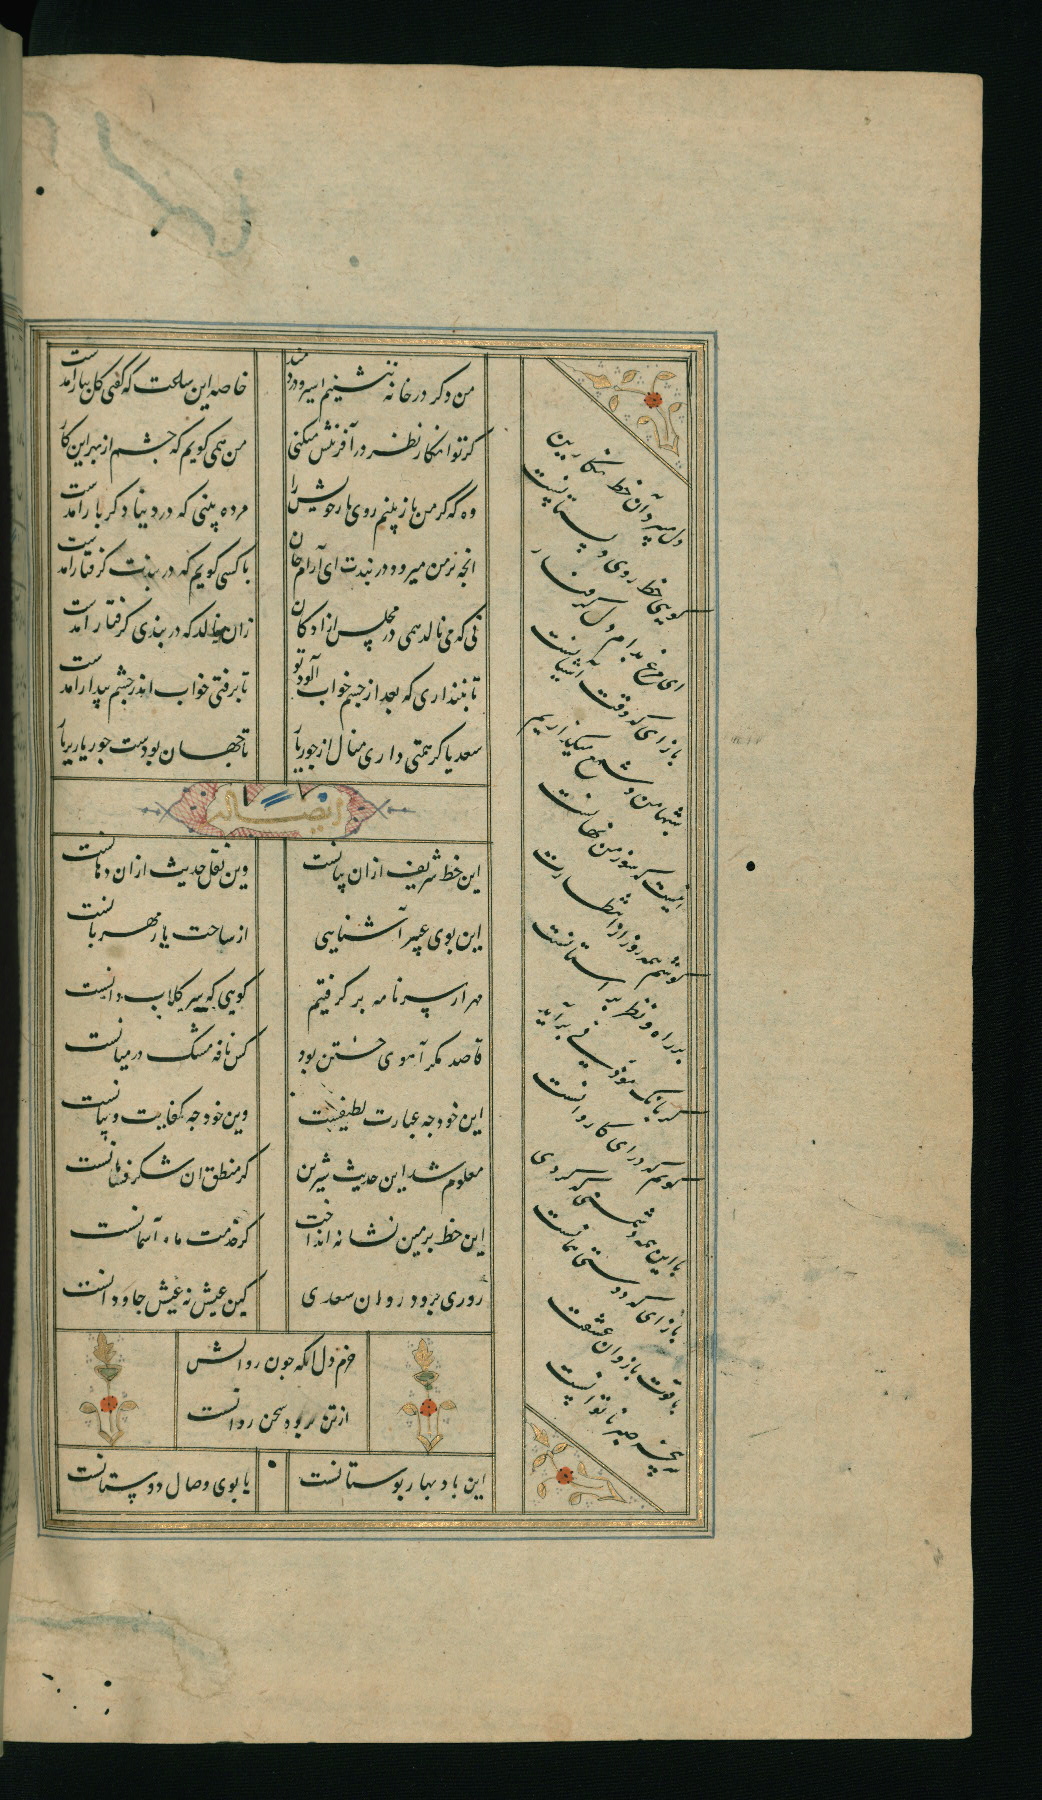 من دکر در خانه ننشینم اسیر و دردمند
خاصه این ساعت که کفتی کل ببار آمدست
کر تو انکار نظر در آفرینش میکنی
من همی کویم که چشم از بهر این کار
وه که کر من باز بینم روی یار خویش را
مرده بینی که در دنیا دکر بار آمدست
انچه بر من میرود در بندت ای آرام جان
با کسی کویم که در بندت کرفتار آمدست
نی که می نالد همی در مجلس ازادکان
زان مینالد که در بندی کرفتار آمدست
تا نپنداری که بعد از چشم خواب آلود تو
تا برفتی خواب اندر چشم بیدار آمدست
سعدیا کر همتی داری منال از جور یار
تا جهان بودست جور یار بر یار
ایضاله
این خط شریف از ان بنانست
وین نقل حدیث از ان دهانست
این بوی عبیر آشنایی
از ساحت یار مهربانست
مهر از سر نامه بر کرفتیم
کویی که سر کلاب دانست
قاصد مکر آهوی ختن بود
کس نافه مشک در میانست
این خود چه عبارت لطیفست
وین خود چه کفایت و بیانست
معلوم شد این حدیث شیرین
کز منطق ان شکر فشانست
این خط بزمین نشانه انداخت
کز خدمت ماه آسمانست
روزی برود روان سعدی
کین عیش نه عیش جاودانست
خرم دل انکه چون روانش
از تن برود سخن روانست
این باد بهار بوستانست
یا بوی وصال دوستانست
دل میبرد آن خط نکارین
کویی خط روی دلستانست
ای مرغ بدام دل کرفتار
باز ای که وقت آشیانست
شبها من و شمع میکدازیم
اینست که سوز من نهانست
کوشم همه روز از انتظارت
بر راه و نظر بر استانست
کر بانک موذنی بر آید
کویم که درای کاروانست
با این همه دشمنی که کردی
باز ای که دوستی همانست
با قوت بازوان عشقت
سر پنجه صبر ناتوانست